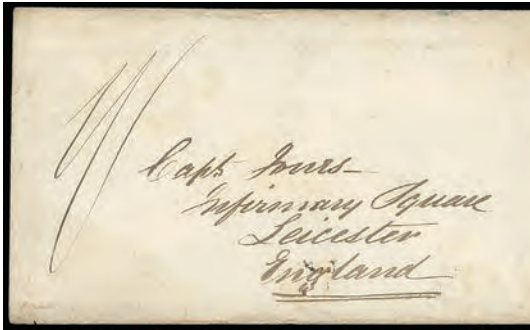 Capt
Infirmary Square
Leicester
England